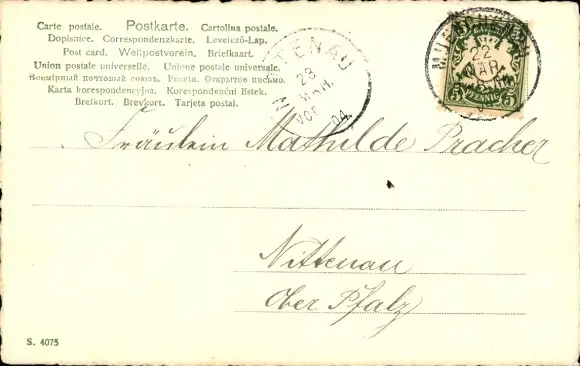 Carte postale. Postkarte. Cartolina postale.
Dopisnice. Correspondenzkarte. Levelező-Lap.
Post card. Weltpostverein. Briefkaart.
Union postale universelle. Unione postale universale.
Всемірный почтовый союзъ. Россія. Открытое письмо.
Karta korespondencyjna. Korespondenční lístek.
Brefkort. Brevkort. Tarjeta postal.
NITTENAU
23
MAR.
VOR
04
22
MAR.
5 PFENNIG 5
Fräulein Mathilde Pracher
Nittenau
Ober Pfalz
S. 4075